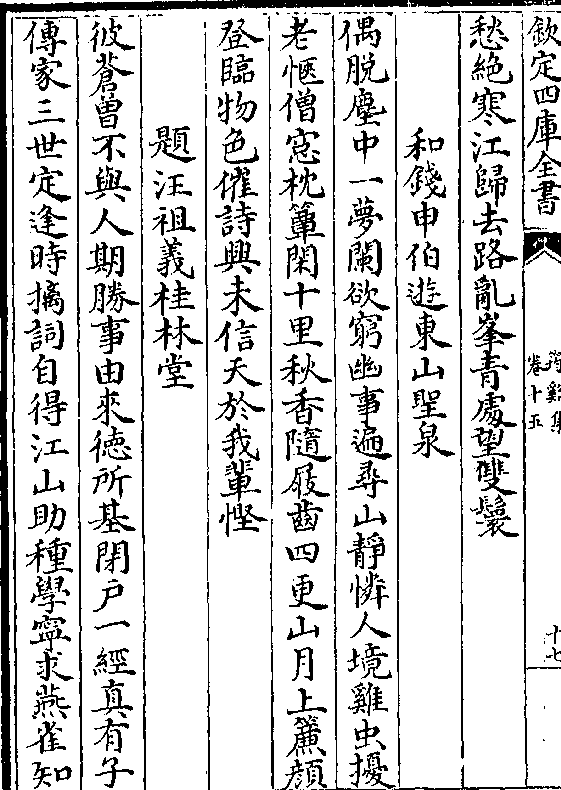 欽定四庫全書
筠谿集
卷十五
十七
愁絶寒江歸去路亂峯青處望雙鬟
和錢申伯遊東山聖泉
偶脱塵中一夢闌欲窮幽事遍尋山靜憐人境雞虫擾
老愜僧窓枕簟閑十里秋香隨屐齒四更山月上簾顔
登臨物色催詩興未信天於我輩慳
題汪祖義桂林堂
彼蒼曽不與人期勝事由來徳所基閉户一經真有子
傳家三世定逢時摛詞自得江山助種學寧求燕雀知